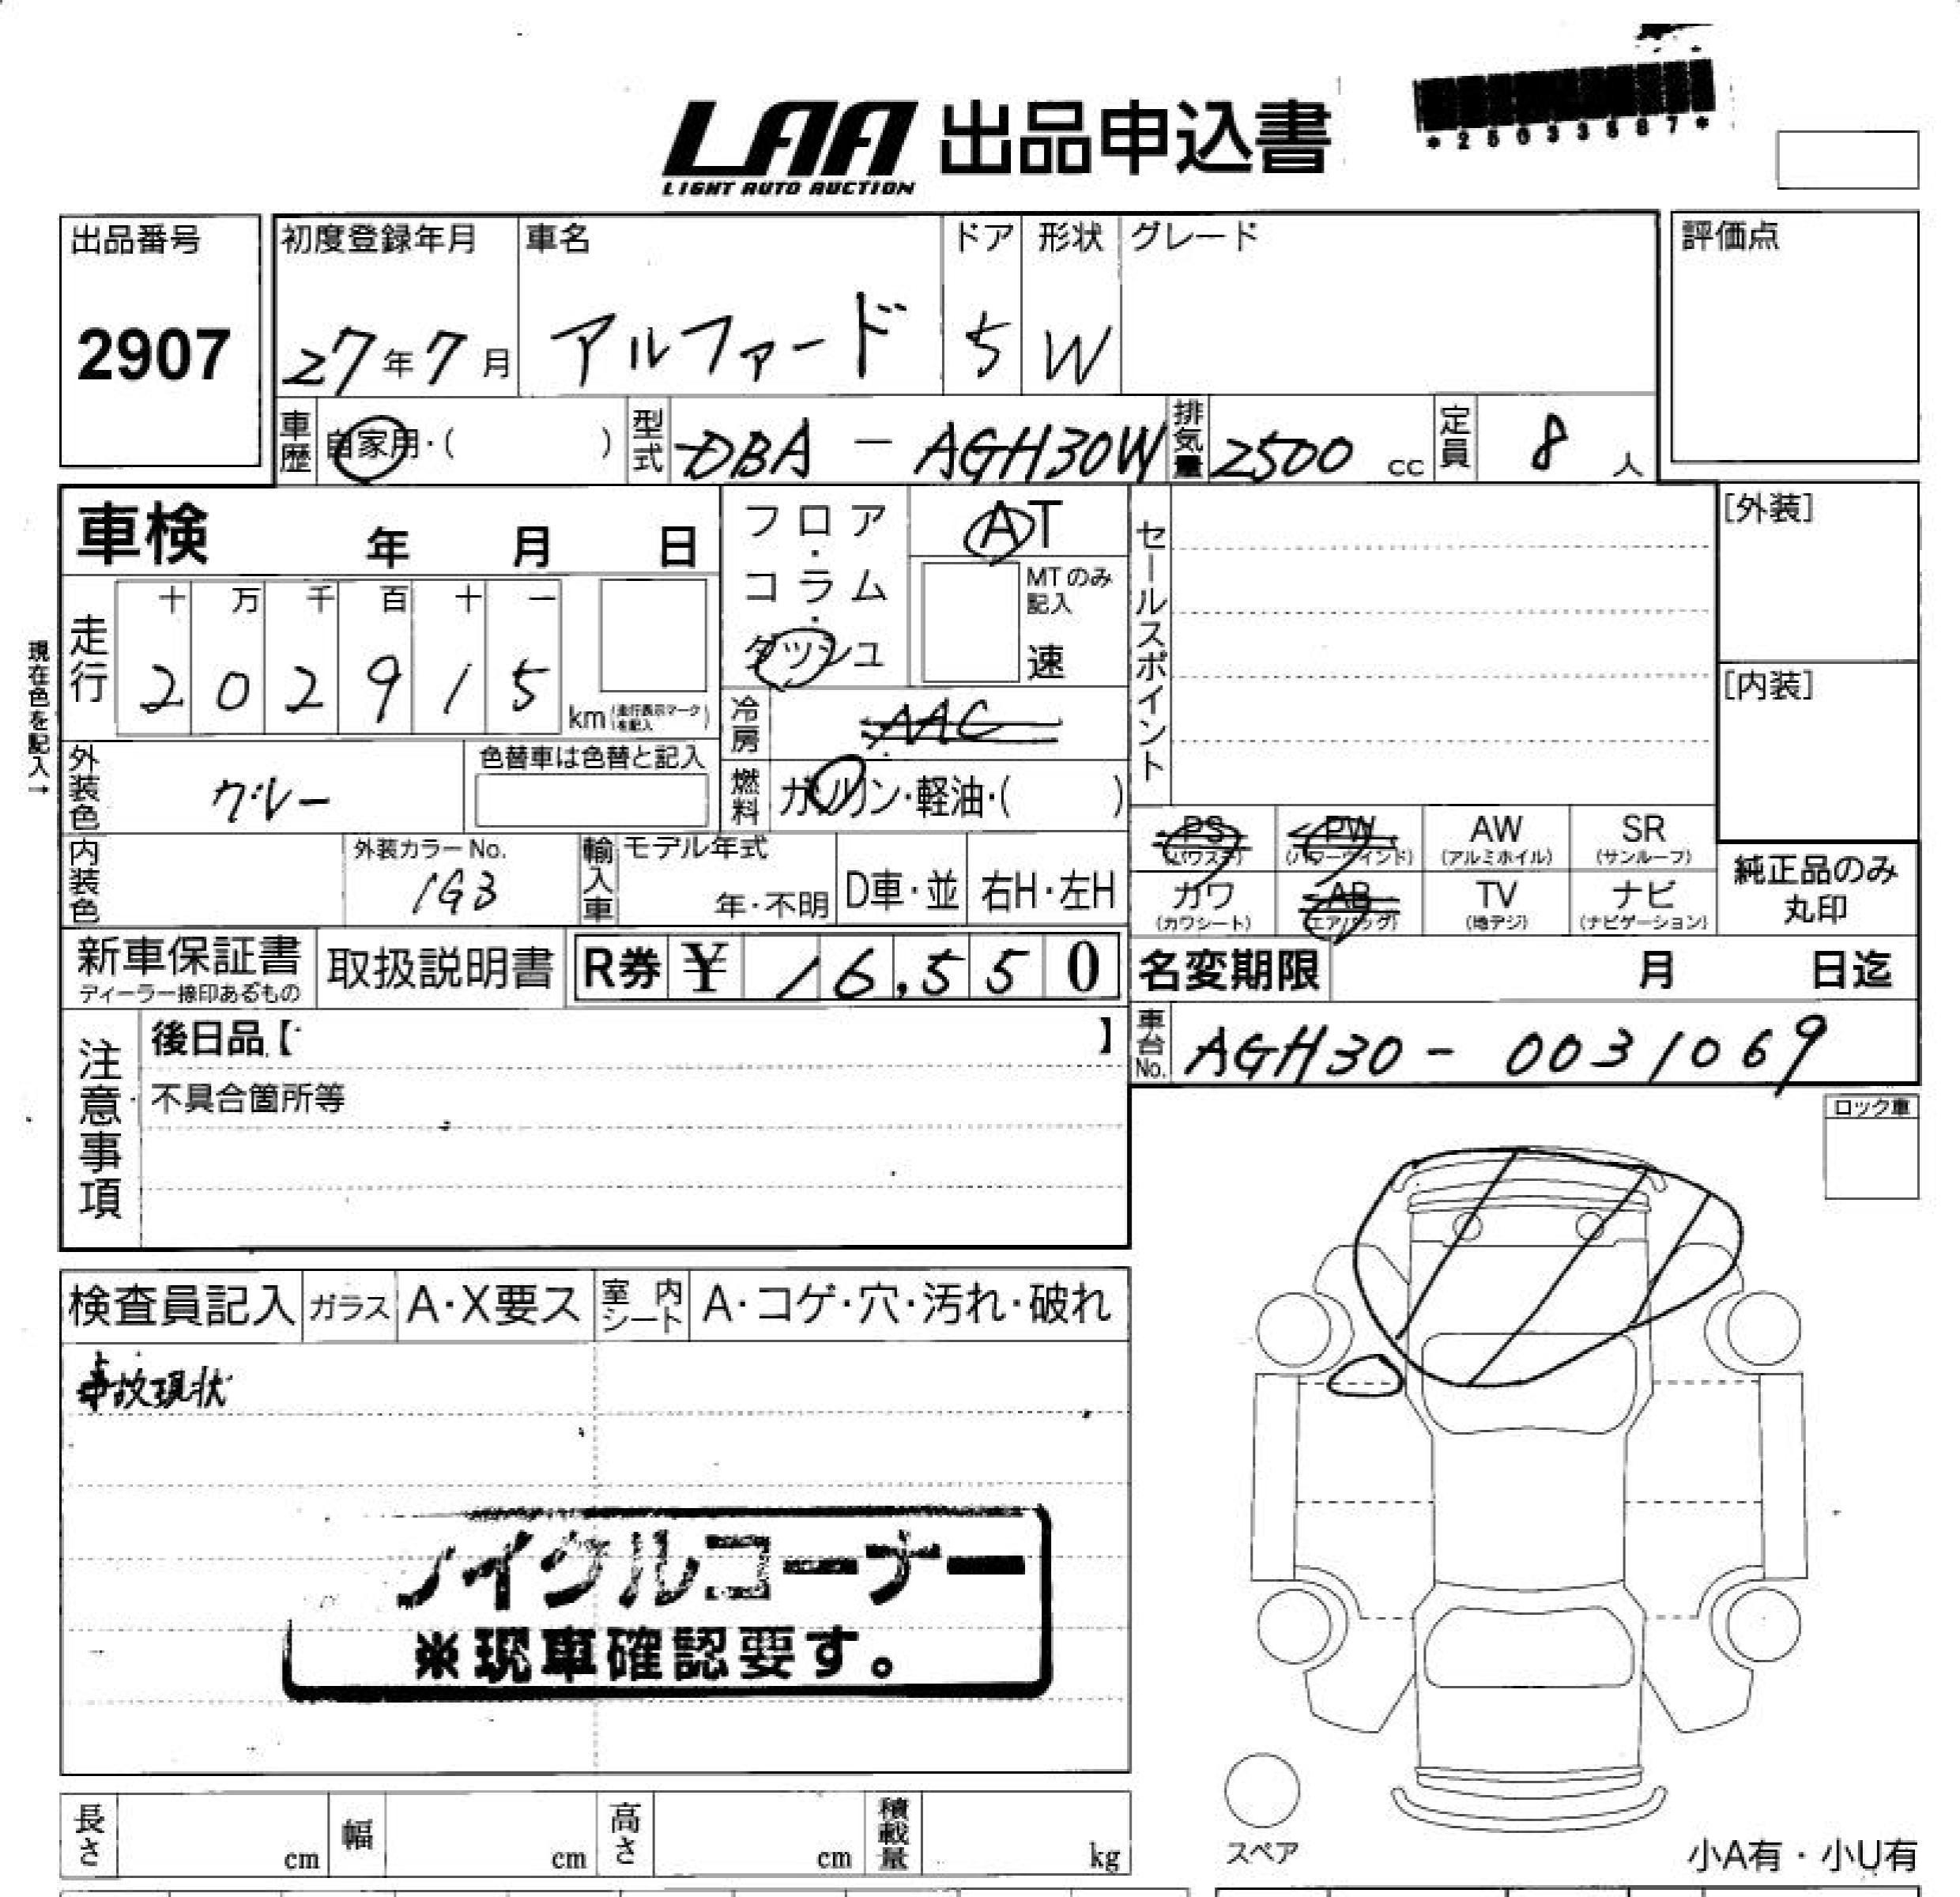 LAA 出品申込書
LIGHT AUTO AUCTION
*25033567*
出品番号
2907
初度登録年月 車名 ドア 形状 グレード
27年7月 アルファード 5 W
評価点
車歴 自家用・( ) 型式 DBA - AGH30W 排気量 2500 cc 定員 8 人
車検 年 月 日
フロア・コラム・ダッシュ
AT
MTのみ記入
速
セールスポイント
[外装]
[内装]
現在色を記入→
走行 十 万 千 百 十 一
2 0 2 9 1 5 km (走行表示マークを記入)
冷房 AAC
外装色 グレー 色替車は色替と記入
燃料 ガソリン・軽油・( )
内装色 外装カラーNo. 1G3
輸入車 モデル年式 年・不明 D車・並 右H・左H
PS (パワステ) PW (パワーウィンド) AW (アルミホイル) SR (サンルーフ)
カワ (カワシート) AB (エアバッグ) TV (地デジ) ナビ (ナビゲーション)
純正品のみ
丸印
新車保証書 取扱説明書 R券 ¥ 16,550
ディーラー捺印あるもの
名変期限 月 日迄
車台No. AGH30-0031069
注意事項
後日品【 】
不具合箇所等
ロック車
検査員記入 ガラス A・X要ス 室内シート A・コゲ・穴・汚れ・破れ
事故現状
イクルコーナー
※現車確認要す。
長さ cm 幅 cm 高さ cm 積載量 kg
スペア
小A有・小U有